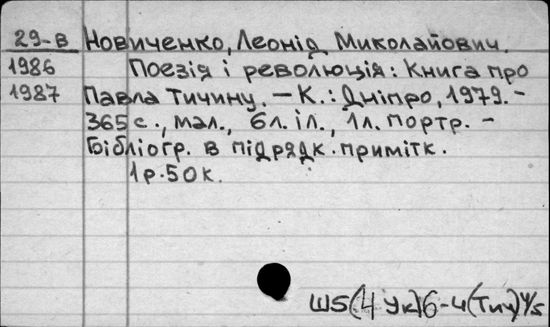 29-в Новиченко, Леонід Миколайович.
1986 Поезія і революція: Книга про
1987 Павла Тичину. – К.: Дніпро, 1979. –
365 с., мал., 6 л. іл., 1 л. портр. –
Бібліогр. в підрядк. примітк.
1 р. 50 к.
Ш5(4 Ук)6-4(Тич)